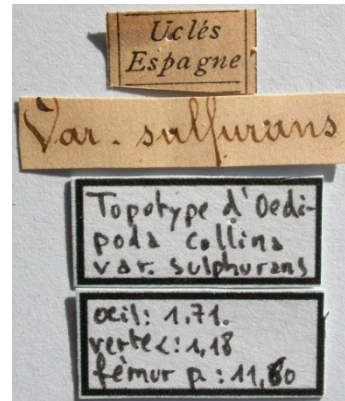 Uclés
Espagne
Var. sulfurans
Topotype d'Oedi-
poda collina
var. sulphurans
œil: 1,71.
vertex: 1,18
fémur p.: 11,60